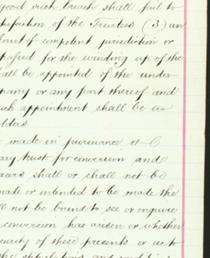 good such breach shall fail to
satisfaction of the Trustees (3) an
Court of competent jurisdiction or
passed for the winding up of the
all be appointed of the under
pany or any part thereof and
uch appointment shall be
lders
made in pursuance of
any trust for conversion and
shall or shall not be
made or intended to be made the
ll not be bound to see or enquire
conversion has arisen or whether
of these presents or as to
the stipulations and